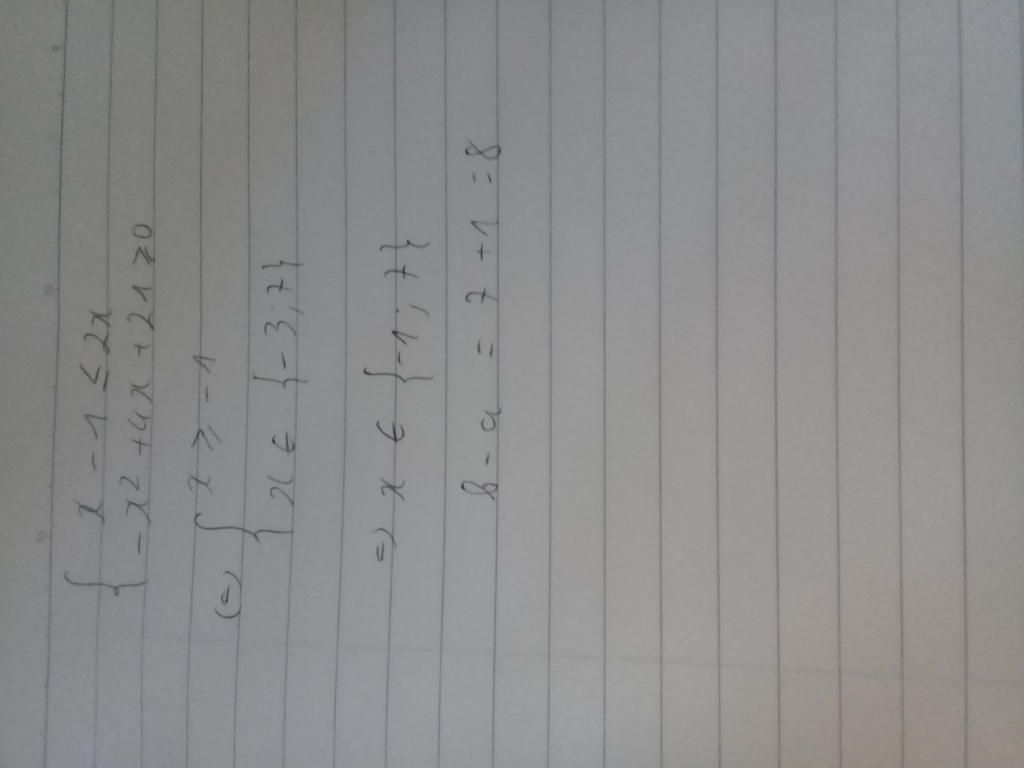 { x - 1 ≤ 2x
{ - x² + 4x + 21 ≥ 0
(=) { x ≥ -1
{ x ∈ {-3; 7}
=) x ∈ {-1; 7}
b - a = 7 + 1 = 8